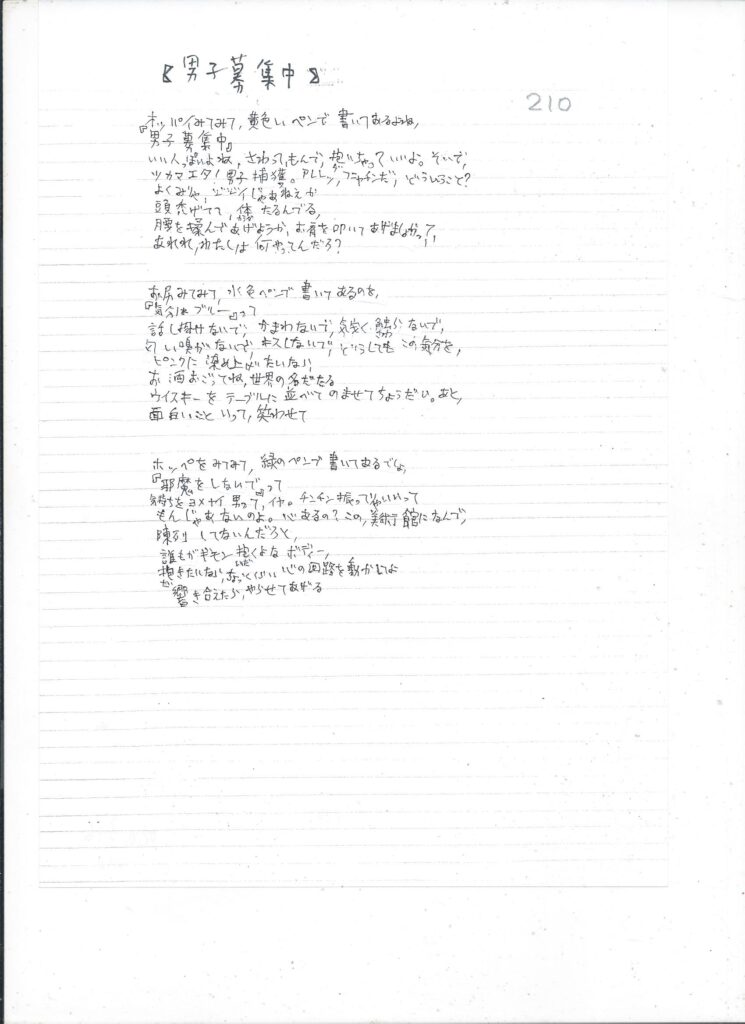 《男子募集中》
210
オッパイみてみて、黄色いペンで書いてあるよね、
『男子募集中』
いい人っぽいよね、さわってもんで、抱いちゃっていいよ。そいで、
ツカマエタ！男子捕獲。アレレッ、フニャチンだ、どういうこと？
よくみりゃ、ジジイじゃあねえか
頭禿げてて、体たるんでる、
腰を揉んであげようか、お肩を叩いてあげましょかって、
あれれ、わたしは何やってんだろ？
お尻みてみて、水色ペンで書いてあるのを、
『気分はブルー』って
話し掛けないで、かまわないで、気安く触らないで、
匂い嗅がないで、キスしないで、どうしてもこの気分を、
ピンクに染め上げたいなら、
お酒おごってね、世界の名だたる
ウイスキーをテーブルに並べてのませてちょうだい。あと、
面白いこといって、笑わせて
ホッペをみてみて、緑のペンで書いてあるでしょ、
『邪魔をしないで』って
気持ちをヨメナイ男って、イヤ。チンチン振ってりゃいいって
もんじゃあないのよ。心あるの？この、美術館になんで、
陳列してないんだろと、
誰もがギモン抱くよなボディー、
抱きたいなら、心の回路を動かしてよ
響き合えたら、やらせてあげる